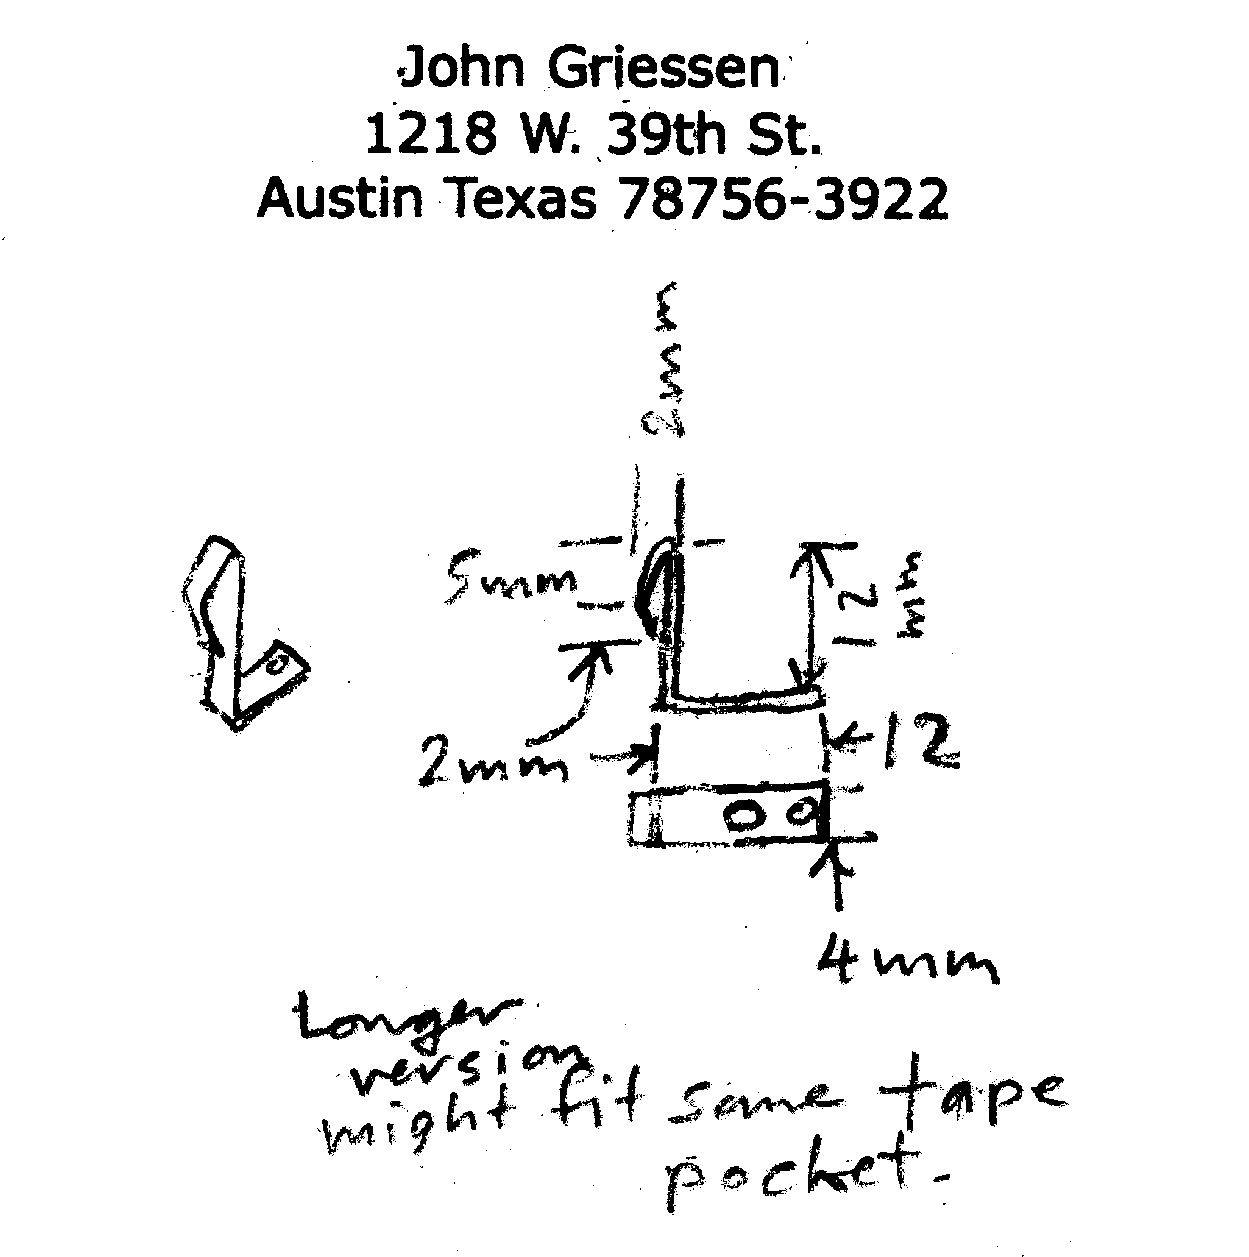 John Griessen
1218 W. 39th St.
Austin Texas 78756-3922
2mm
5mm
12
mm
2mm
12
4mm
Longer
version
might fit same tape
pocket.